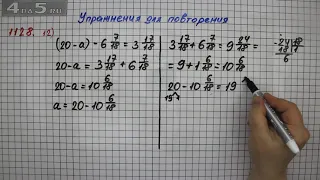 4АО5.RU
Упражнения для повторения
1128. 12)
(20-a) - 6 7/18 = 3 17/18
20-a = 3 17/18 + 6 7/18
20-a = 10 6/18
a = 20 - 10 6/18
3 17/18 + 6 7/18 = 9 24/18 =
= 9 + 1 6/18 = 10 6/18
20 - 10 6/18 = 19
19 1
-24 18
18 1
6